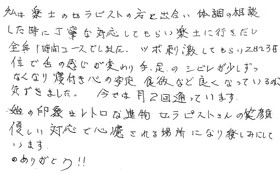 私は楽土のセラピストの方と出会い 体調の相談
した時に丁寧な対応してもらい楽土に行をだし
全身1時間コースでしました。ツボ刺激してもらい2日と3日
位で舌の感じが変わり手、足のシビレが少しずつ
なくなり寝付き心の安定 食欲など良くなっているのに
気ずきました。 今では月2回通っています。
始の印象はレトロな建物 セラピストさんの笑顔
優しい対応で心癒される場所になり楽しみにして
います。
ありがとう!!